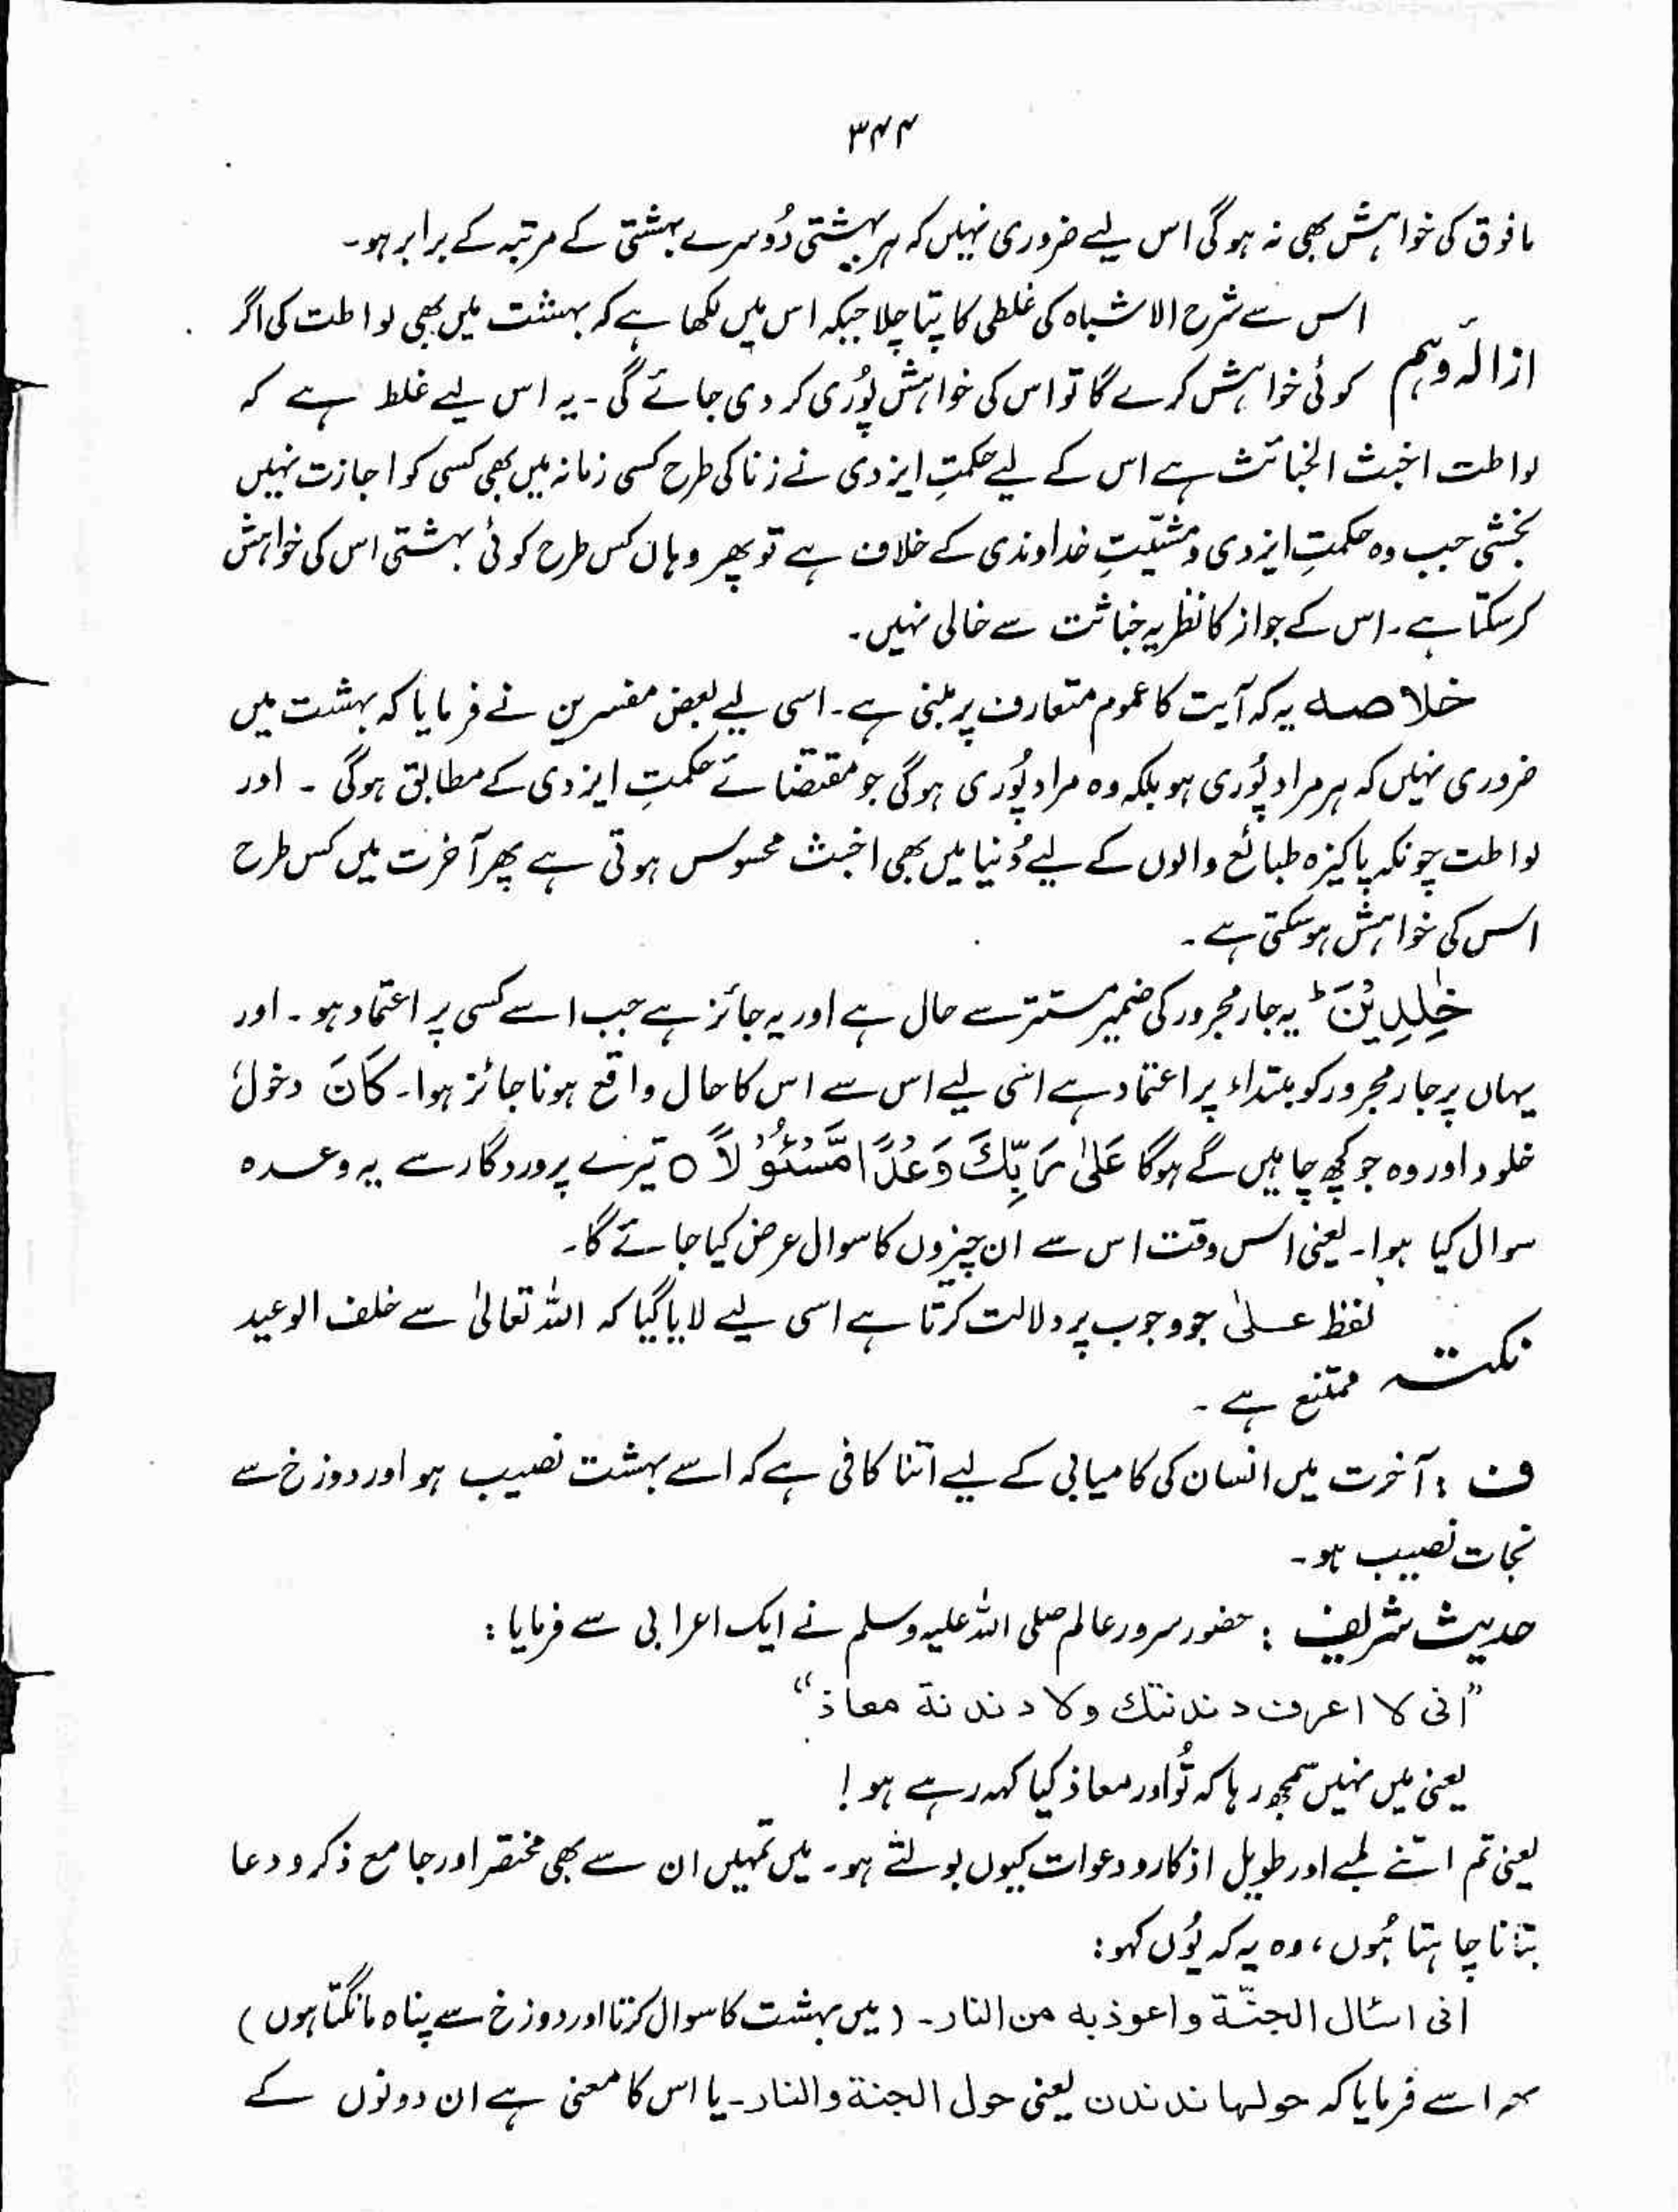 ۳۴۴
مافوق کی خواہش بھی نہ ہوگی اس لیے ضروری نہیں کہ ہر بہشتی دُوسرے بہشتی کے مرتبہ کے برابر ہو۔
اس سے شرح الاشباہ کی غلطی کا پتا چلا جبکہ اس میں لکھا ہے کہ بہشت میں بھی لواطت کی اگر
ازالۂ وہم کوئی خواہش کرے گا تو اس کی خواہش پُوری کر دی جائے گی۔ یہ اس لیے غلط ہے کہ
لواطت اخبث الخبائث ہے اس کے لیے حکمتِ ایزدی نے زنا کی طرح کسی زمانہ میں بھی کسی کو اجازت نہیں
بخشی جب وہ حکمتِ ایزدی و مشیّتِ خداوندی کے خلاف ہے تو پھر وہاں کس طرح کوئی بہشتی اس کی خواہش
کر سکتا ہے۔ اس کے جواز کا نظریہ خباثت سے خالی نہیں۔
خلاصہ یہ کہ آیت کا عموم متعارف پر مبنی ہے۔ اسی لیے بعض مفسرین نے فرمایا کہ بہشت میں
ضروری نہیں کہ ہر مراد پُوری ہو بلکہ وہ مراد پُوری ہوگی جو مقتضائے حکمتِ ایزدی کے مطابق ہوگی ۔ اور
لواطت چونکہ پاکیزہ طبائع والوں کے لیے دُنیا میں بھی اخبث محسوس ہوتی ہے پھر آخرت میں کس طرح
اس کی خواہش ہو سکتی ہے۔
خٰلِدِیْنَ ؕ یہ جار مجرور کی ضمیر مستتر سے حال ہے اور یہ جائز ہے جب اسے کسی پر اعتماد ہو۔ اور
یہاں پر جار مجرور کو مبتداء پر اعتماد ہے اسی لیے اس سے اس کا حال واقع ہونا جائز ہوا۔ کَانَ دخول
خلود اور وہ جو کچھ چاہیں گے ہوگا عَلٰی رَبِّكَ وَعْدًا مَّسْئُوْلًا ○ تیرے پروردگار سے یہ وعدہ
سوال کیا ہوا۔ یعنی اس وقت اس سے ان چیزوں کا سوال عرض کیا جائے گا۔
لفظ علیٰ جو وجوب پر دلالت کرتا ہے اسی لیے لایا گیا کہ اللہ تعالیٰ سے خلف الوعید
نکتہ ممتنع ہے ۔
ف : آخرت میں انسان کی کامیابی کے لیے اتنا کافی ہے کہ اسے بہشت نصیب ہو اور دوزخ سے
نجات نصیب ہو۔
حدیث شریف : حضور سرور عالم صلی اللہ علیہ وسلم نے ایک اعرابی سے فرمایا :
"انی لا اعرف دندنتك ولا دندنة معاذ"
یعنی میں نہیں سمجھ رہا کہ تُو اور معاذ کیا کہہ رہے ہو !
یعنی تم اتنے لمبے اور طویل اذکار و دعوات کیوں بولتے ہو۔ میں تمہیں ان سے بھی مختصر اور جامع ذکر و دعا
بتانا چاہتا ہُوں، وہ یہ کہ یُوں کہو :
انی اسئال الجنّة واعوذ به من النار۔ (میں بہشت کا سوال کرتا اور دوزخ سے پناہ مانگتا ہوں)
اسے فرمایا کہ حولها ندندن یعنی حول الجنة والنار۔ یا اس کا معنی ہے ان دونوں کے